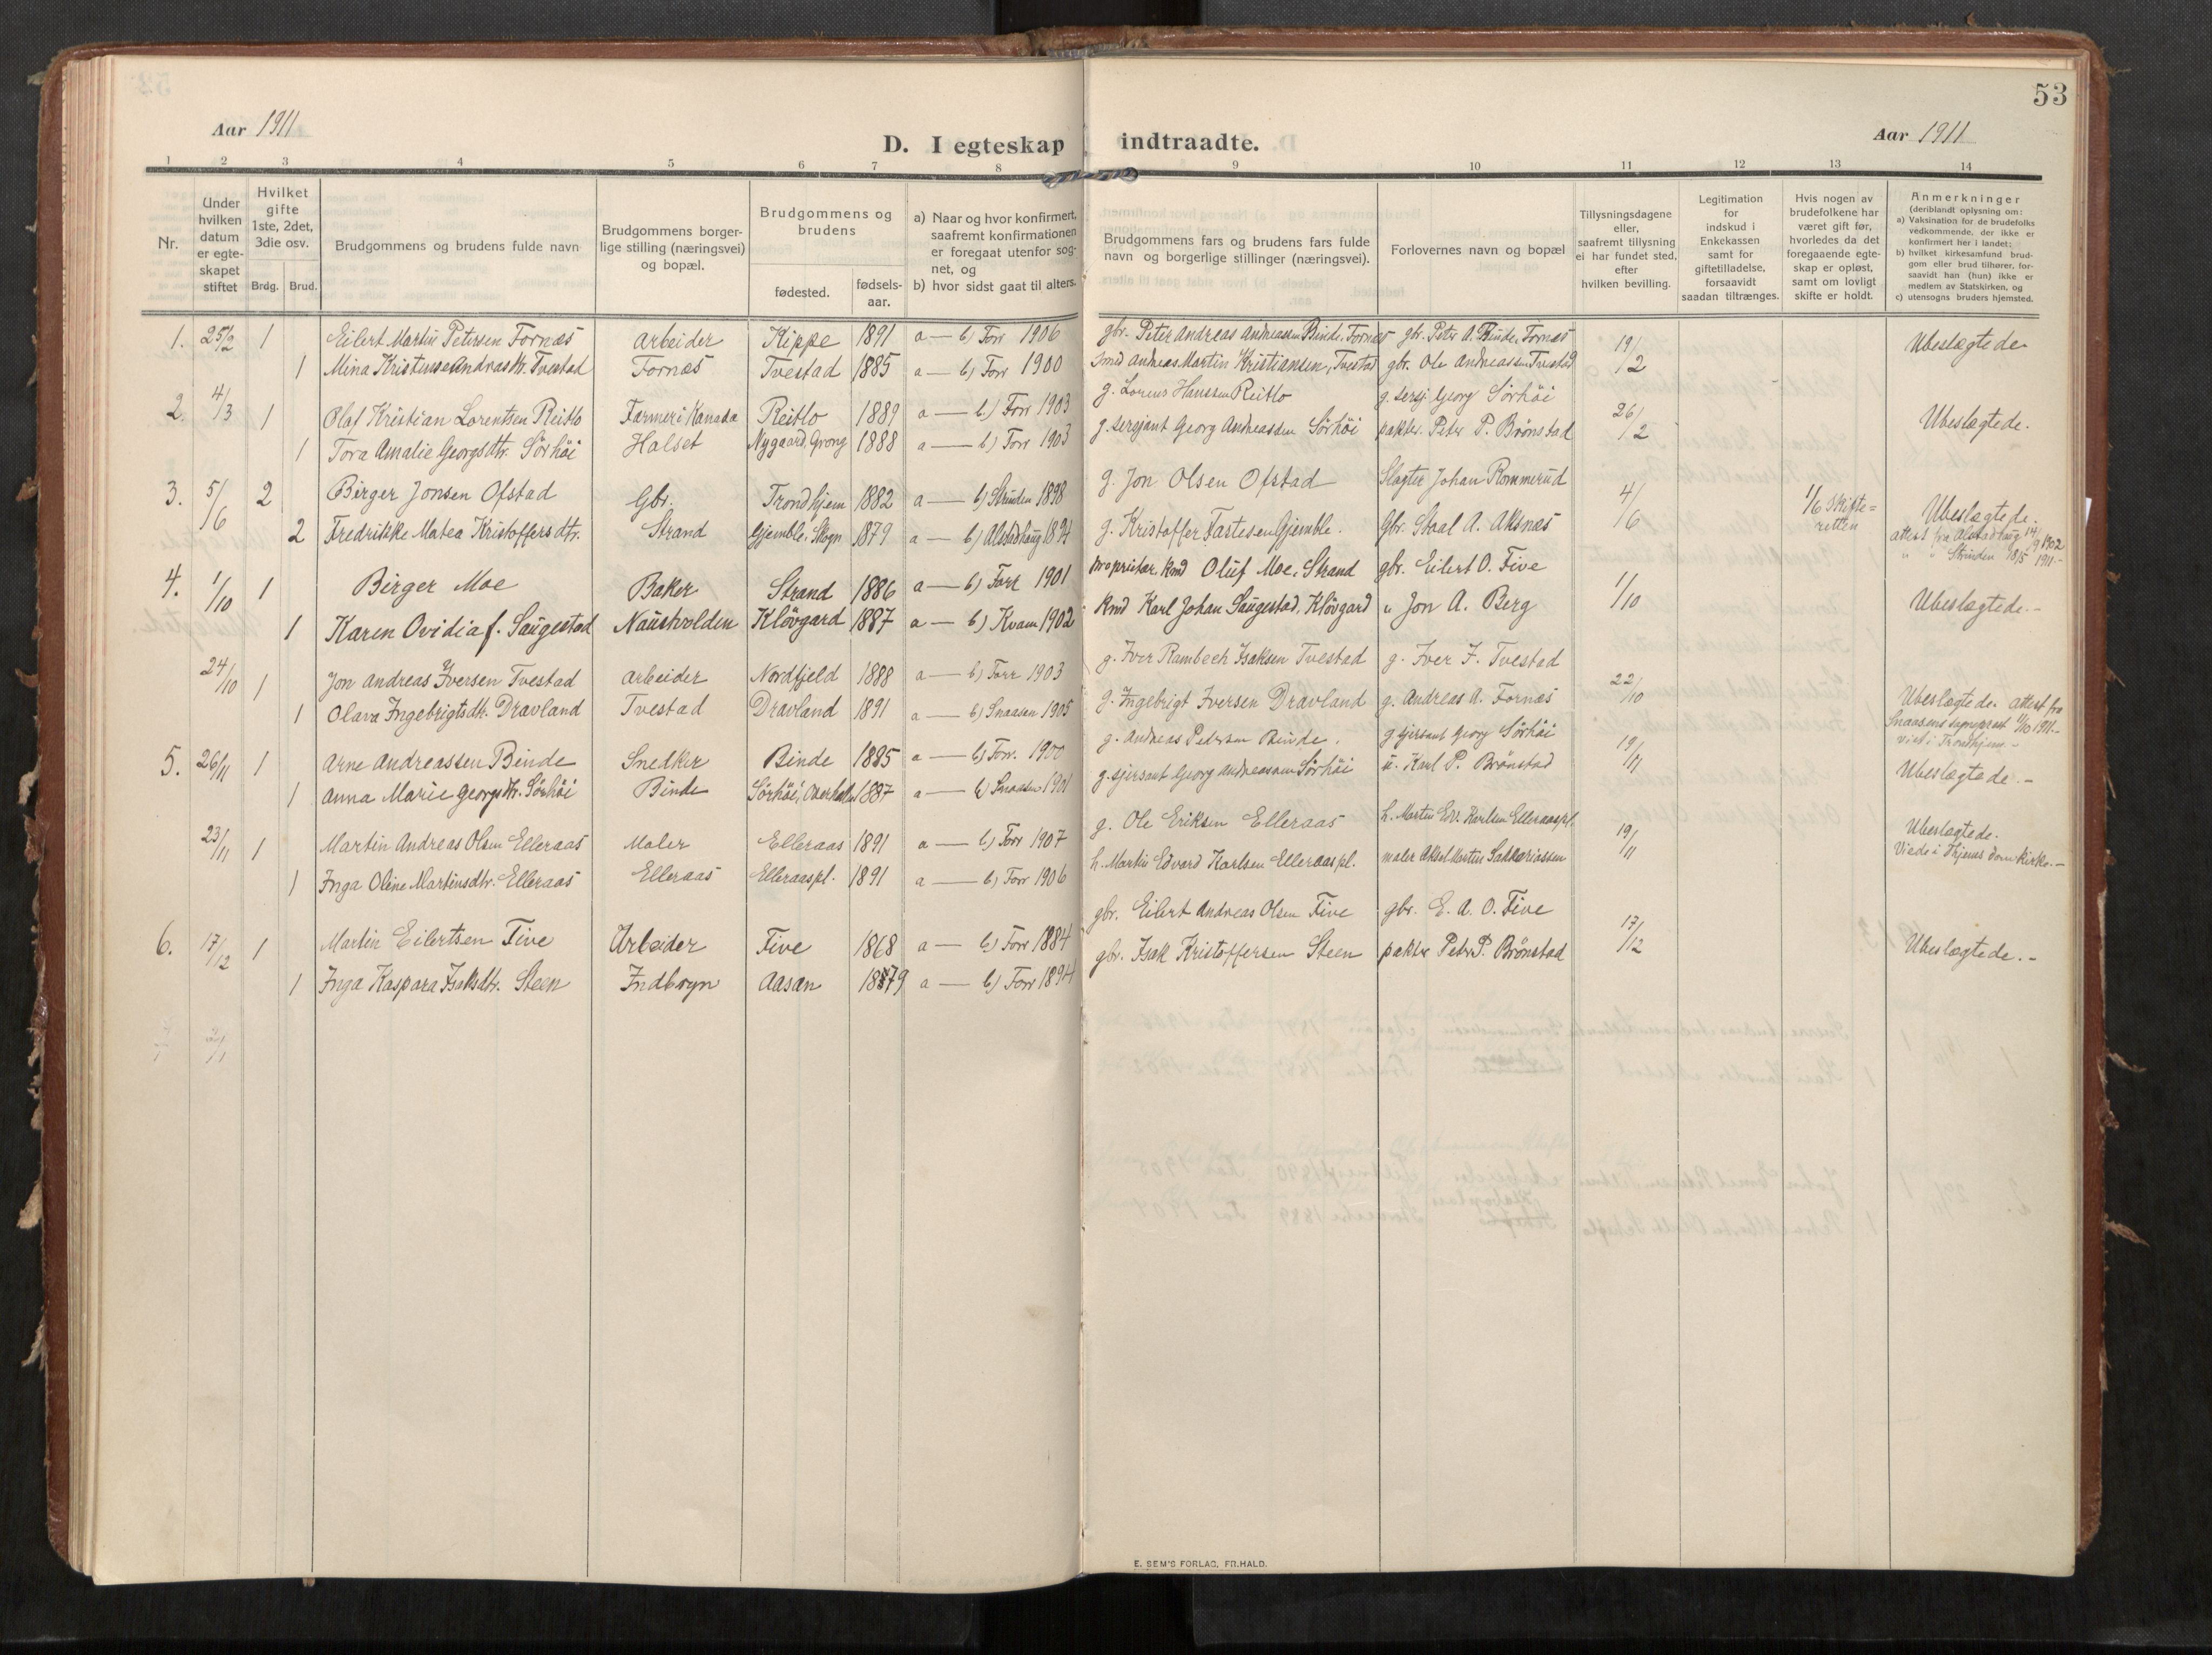 53
Aar 1911
D. I egteskap indtraadte.
Aar 1911
1 2 3 4 5 6 7 8 9 10 11 12 13 14
Nr.
Under hvilken datum er egte- skapet stiftet
Hvilket gifte 1ste, 2det, 3die osv.
Brdg. Brud.
Brudgommens og brudens fulde navn
Brudgommens borger- lige stilling (næringsvei) og bopæl.
Brudgommens og brudens
fødested.
fødsels- aar.
a) Naar og hvor konfirmert, saafremt konfirmationen er foregaat utenfor sog- net, og
b) hvor sidst gaat til alters.
Brudgommens fars og brudens fars fulde navn og borgerlige stillinger (næringsvei).
Forlovernes navn og bopæl
Tillysningsdagene eller, saafremt tillysning ei har fundet sted, efter hvilken bevilling.
Legitimation for indskud i Enkekassen samt for giftetilladelse, forsaavidt saadan tiltrænges.
Hvis nogen av brudefolkene har været gift før, hvorledes da det foregaaende egte- skap er opløst, samt om lovligt skifte er holdt.
Anmerkninger
(deriblandt oplysning om:
a) Vaksination for de brudefolks vedkommende, der ikke er konfirmert her i landet;
b) hvilket kirkesamfund brud- gom eller brud tilhører, for- saavidt han (hun) ikke er medlem av Statskirken, og
c) utensogns bruders hjemsted.
1. 25/2 1 Eilert Martin Petersen Fornæs Arbeider Kippe 1891 a — b) Forr 1906 gbr. Peter Andreas Andreassen Binde, Fornæs gbr. Peter A. Binde, Fornæs 19/2 Ubeslægtede
1 Mina Kristine Andreasdtr. Tvestad Fornæs Tvestad 1885 a — b) Forr 1900 Smed Andreas Martin Kristiansen, Tvestad gbr. Ole Andreassen Tvestad
2. 4/3 1 Olaf Kristian Lorentsen Reitlo Farmer i Kanada Reitlo 1889 a — b) Forr 1903 g. Lorens Hanssen Reitlo g. sersj. Georg Sörhöi 26/2 Ubeslægtede.
1 Tora Amalie Georgsdtr. Sörhöi Halset Nygaard, Grong 1888 a — b) Forr 1903 g. sersjant Georg Andreassen Sörhöi pakter. Peter P. Brönstad
3. 5/6 2 Birger Jonsen Ofstad Gbr. Trondhjem 1882 a — b) Strinden 1898 g. Jon Olsen Ofstad Slagter Johan Rommerud 4/6 1/6 Skifte= retten Ubeslægtede.
2 Fredrikke Matea Kristoffersdtr. Strand Gjemble, Skogn 1879 a — b) Alstadhaug 1894 g. Kristoffer Tastesen Gjemble. Gbr. Staal A. Aksnæs attest fra Alstadhaug 14/9 1902
" " Strinden 18/5 1911.-
4. 1/10 1 Birger Moe Baker Strand 1886 a — b) Forr 1901 proprietær. kmd Oluf Moe, Strand gbr. Eilert O. Five 1/10 Ubeslægtede.-
1 Karen Ovidia f. Saugestad Naustvolden Klövgard 1887 a — b) Kvam 1902 kmd Karl Johan Saugestad, Klövgard " Jon A. Berg
24/10 1 Jon Andreas Iversen Tvestad Arbeider Nordfjeld 1888 a — b) Forr 1903 g. Iver Rambech Isaksen Tvestad g. Iver I. Tvestad 22/10 Ubeslægtede. attest fra
1 Olava Ingebrigtsdtr. Dravland Tvestad Dravland 1891 a — b) Snaasen 1905 g. Ingebrigt Iversen Dravland g. Andreas A. Fornæs Snaasens sogneprest 1/10 1911.-
viet i Trondhjem.-
5. 26/11 1 Arne Andreassen Binde Snedker Binde 1885 a — b) Forr. 1900 g. Andreas Petersen Binde. g. sjersant Georg Sörhöi 19/11 Ubeslægtede.-
1 Anna Marie Georgsdtr. Sörhöi Binde Sörhöi, Overhallen 1887 a — b) Snaasen 1901 g. sjersant Georg Andreassen Sörhöi u. Karl P. Brönstad
23/11 1 Martin Andreas Olsen Elleraas Maler Elleraas 1891 a — b) Forr 1907 g. Ole Eriksen Elleraas h. Martin Edv. Karlsen Elleraaspl. 19/11 Ubeslægtede.
1 Inga Oline Martinsdtr. Elleraas Elleraas Elleraaspl. 1891 a — b) Forr 1906 h. Martin Edvard Karlsen Elleraaspl. maler Aksel Martin Sakkariassen Viede i Thjems domkirke.-
6. 17/12 1 Martin Eilertsen Five Arbeider Five 1868 a — b) Forr 1884 gbr. Eilert Andreas Olsen Five gbr. E. A. O. Five 17/12 Ubeslægtede.-
1 Inga Kaspara Isaksdtr. Steen Indbryn Aasan 1879 a — b) Forr 1894 gbr. Isak Kristoffersen Steen pakter Peter P. Brönstad
E. SEM'S FORLAG, FR.HALD.